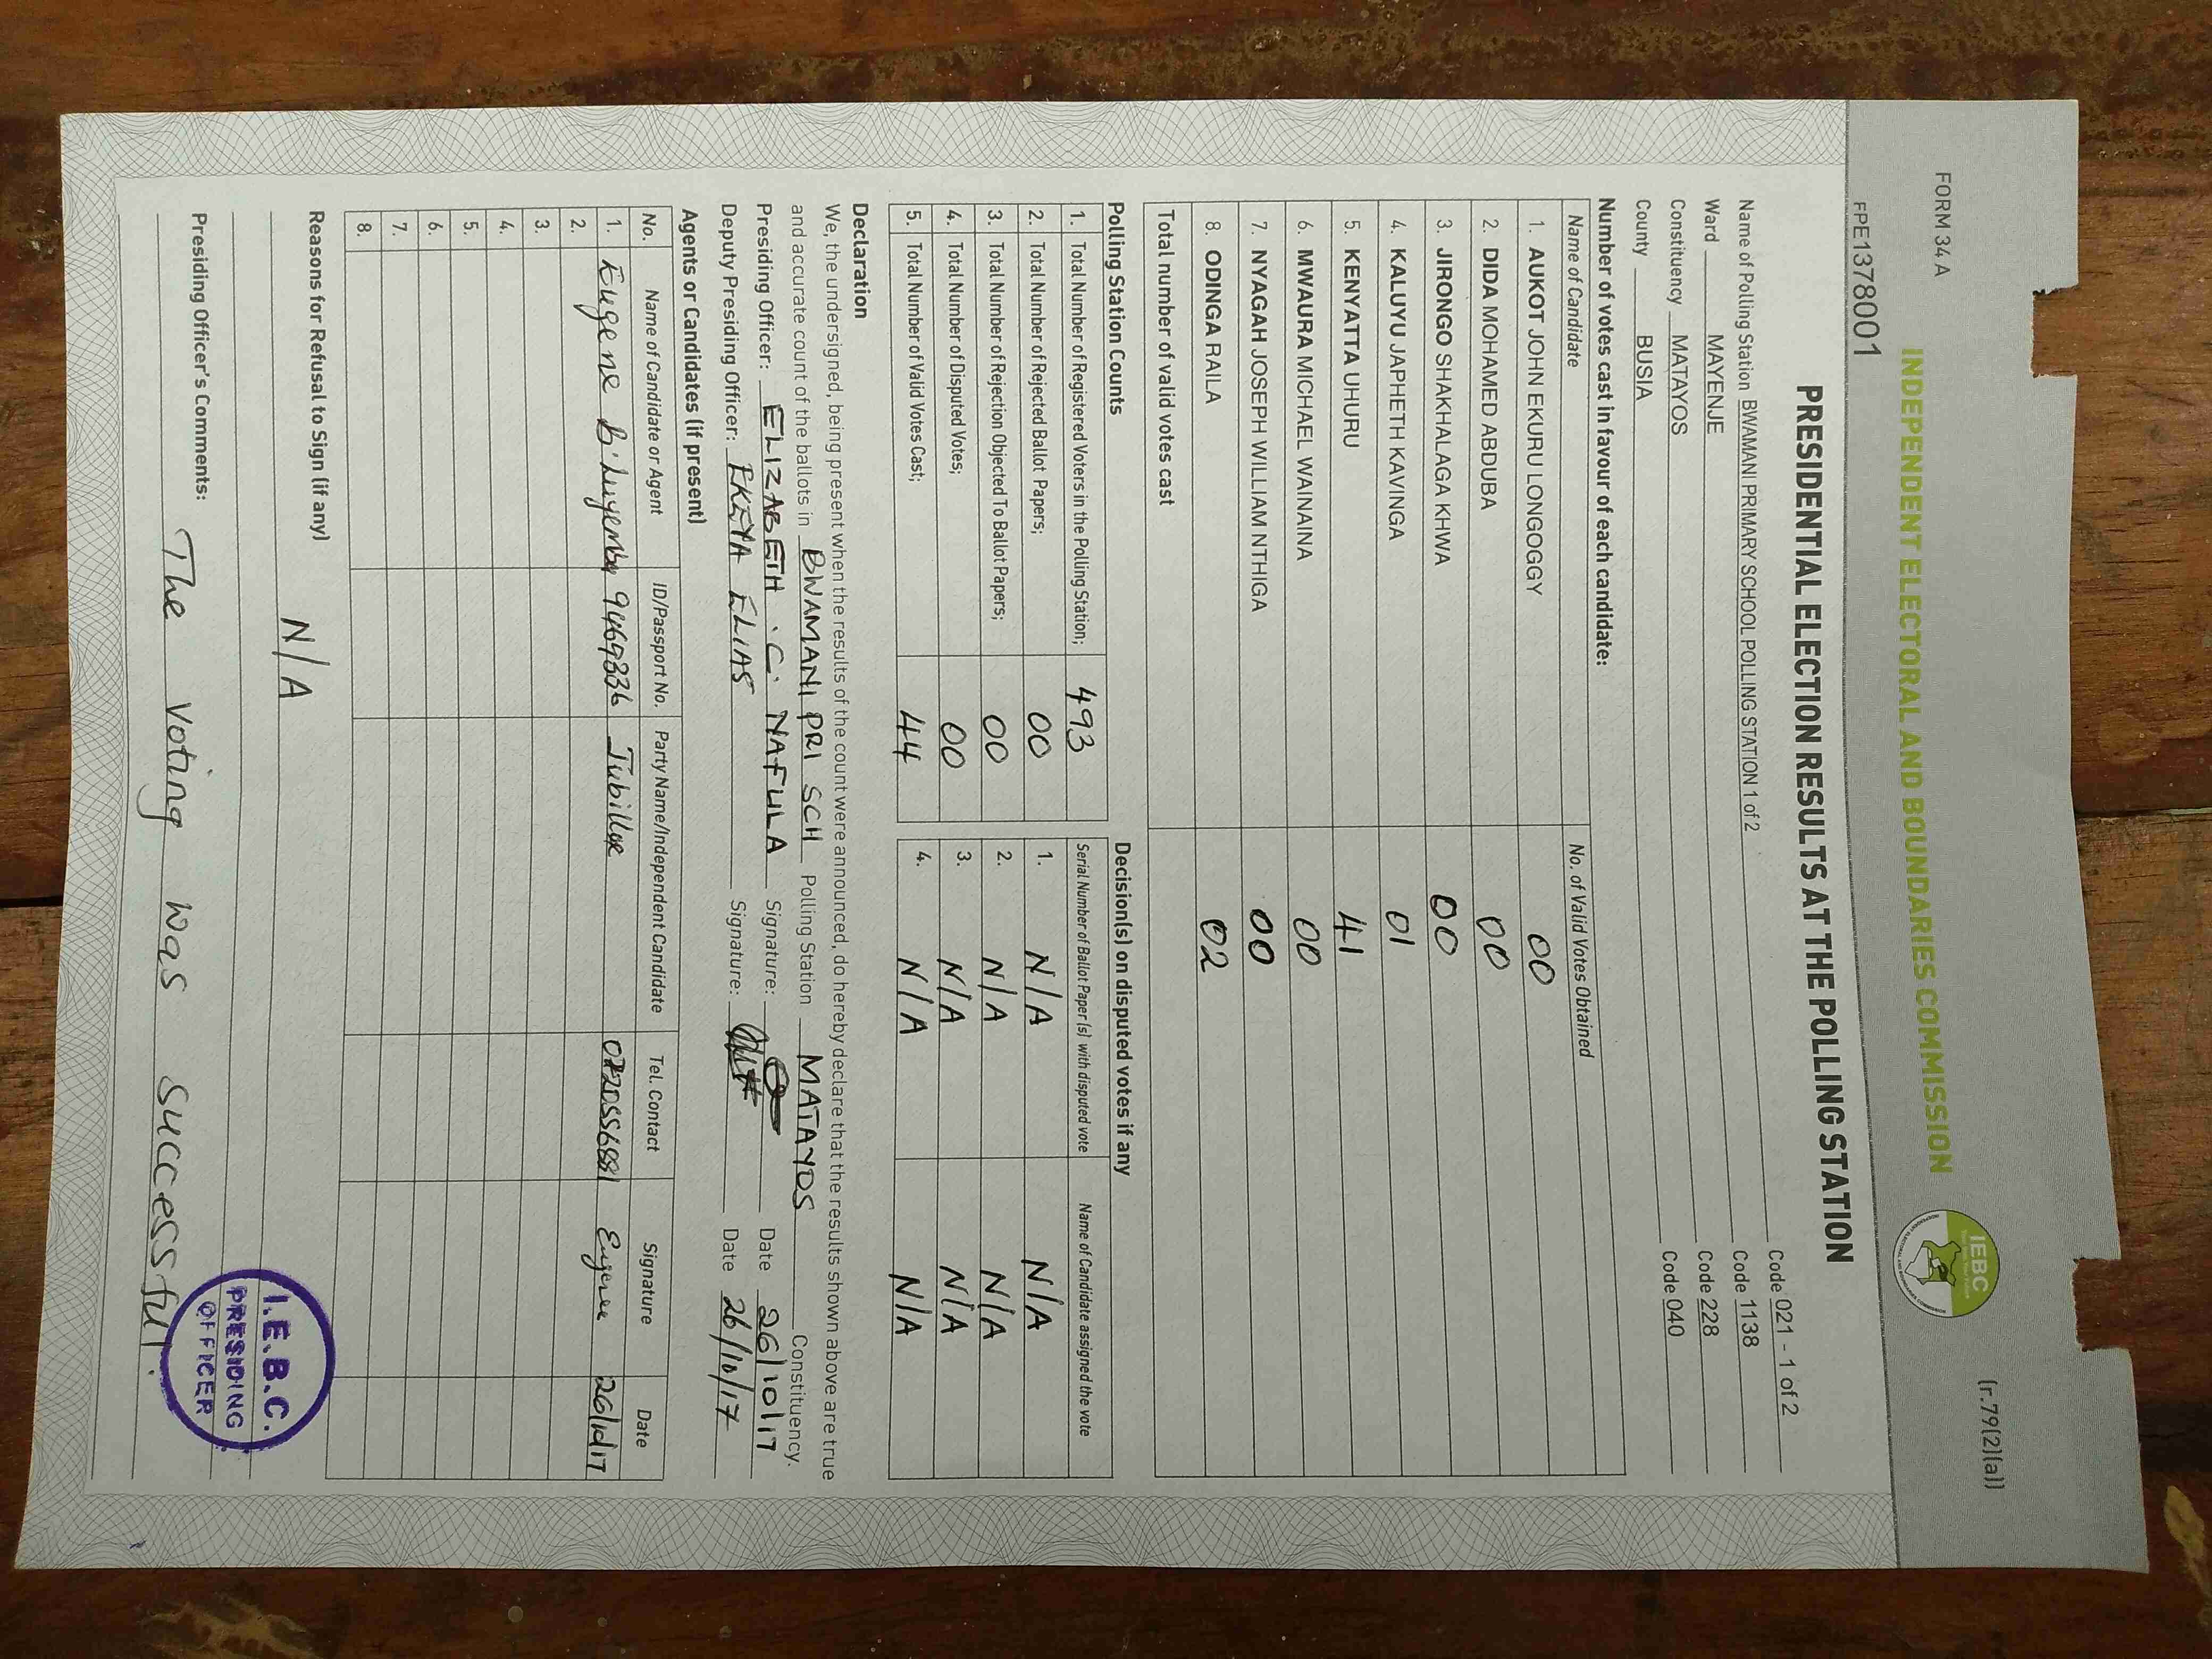 FORM 34 A
(r.79(2)(a))
INDEPENDENT ELECTORAL AND BOUNDARIES COMMISSION
IEBC
FPE1378001
PRESIDENTIAL ELECTION RESULTS AT THE POLLING STATION
Name of Polling Station BWAMANI PRIMARY SCHOOL POLLING STATION 1 of 2 Code 021 - 1 of 2
Ward MAYENJE Code 1138
Constituency MATAYOS Code 228
County BUSIA Code 040
Number of votes cast in favour of each candidate:
Name of Candidate No. of Valid Votes Obtained
1. AUKOT JOHN EKURU LONGOGGY 00
2. DIDA MOHAMED ABDUBA 00
3 JIRONGO SHAKHALAGA KHWA 00
4. KALUYU JAPHETH KAVINGA 01
5. KENYATTA UHURU 41
6. MWAURA MICHAEL WAINAINA 00
7. NYAGAH JOSEPH WILLIAM NTHIGA 00
8. ODINGA RAILA 02
Total number of valid votes cast
Polling Station Counts
1. Total Number of Registered Voters in the Polling Station; 493
2. Total Number of Rejected Ballot Papers; 00
3. Total Number of Rejection Objected To Ballot Papers; 00
4. Total Number of Disputed Votes; 00
5. Total Number of Valid Votes Cast; 44
Decision(s) on disputed votes if any
Serial Number of Ballot Paper (s) with disputed vote Name of Candidate assigned the vote
1. N/A N/A
2. N/A N/A
3. N/A N/A
4. N/A N/A
Declaration
We, the undersigned, being present when the results of the count were announced, do hereby declare that the results shown above are true
and accurate count of the ballots in BWAMANI PRI SCH Polling Station MATAYOS Constituency.
Presiding Officer: ELIZABETH . C. NAFULA Signature: Date 26/10/17
Deputy Presiding Officer: EKEYA ELIAS Signature: Date 26/10/17
Agents or Candidates (if present)
No. Name of Candidate or Agent ID/Passport No. Party Name/Independent Candidate Tel. Contact Signature Date
1. Eugene B. 9469336 Jubillee Eugene 26/10/17
2.
3.
4.
5.
6.
7.
8.
Reasons for Refusal to Sign (if any)
N/A
Presiding Officer's Comments:
The Voting was successful.
I.E.B.C.
PRESIDING
OFFICER